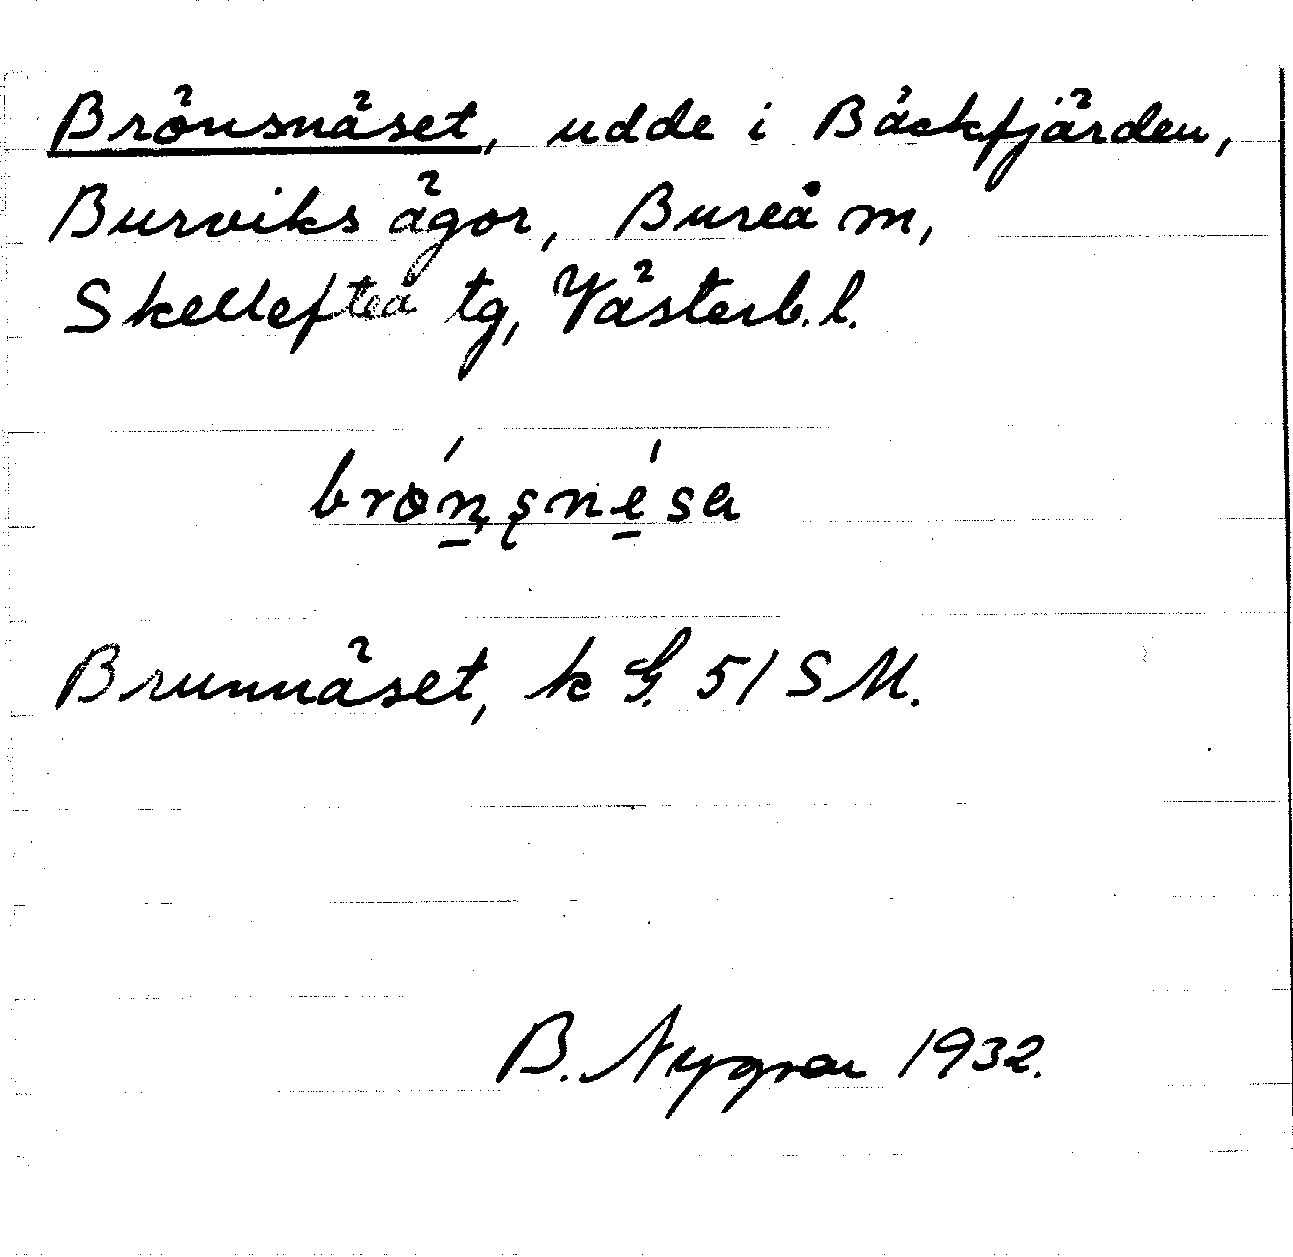 Brönsnäset, udde i Bäckfjärden,
Burviks ägor, Bureå m,
Skellefteå tg, Västerb. l.
bronsnesa
Brunnäset, k G. 51 SM.
B. Nygren 1932.